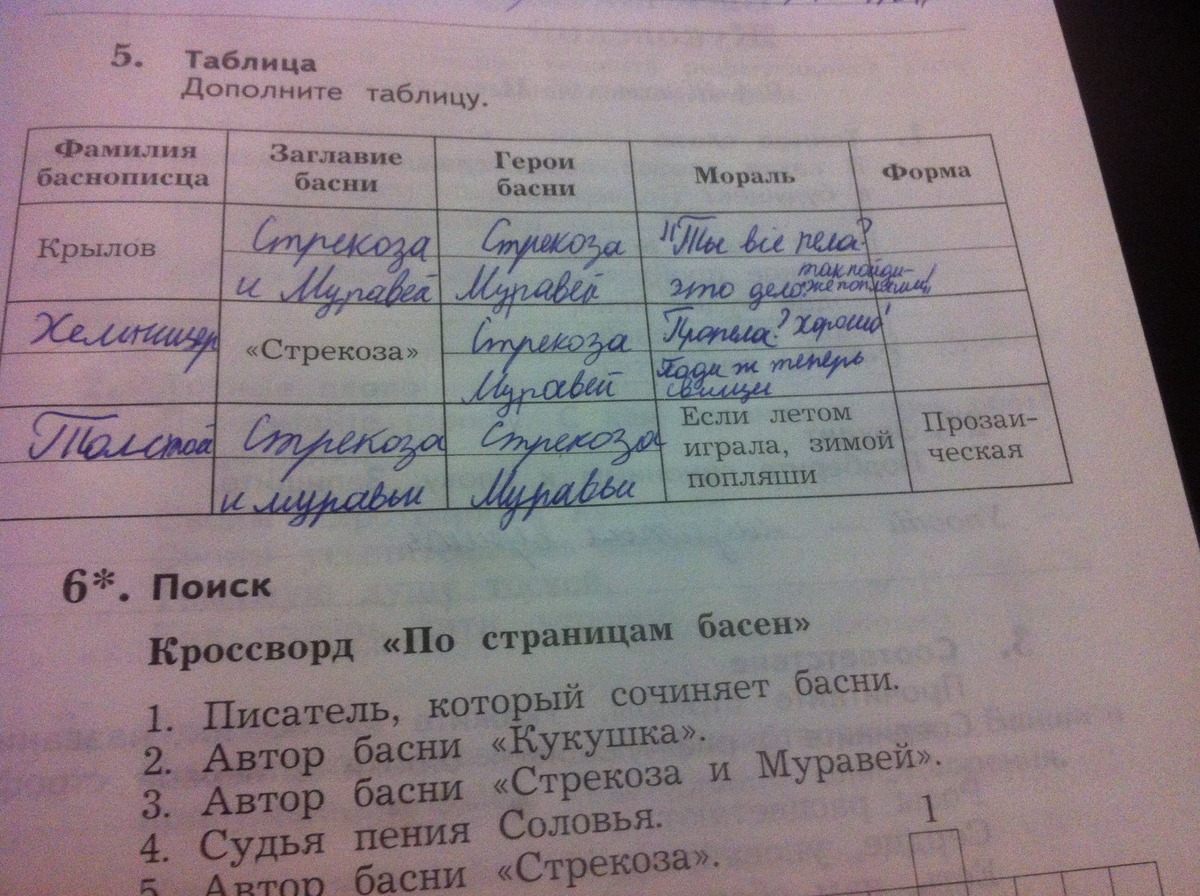 5. Таблица
Дополните таблицу.
Фамилия баснописца
Заглавие басни
Герои басни
Мораль
Форма
Крылов
Стрекоза
и Муравей
Стрекоза
Муравей
"Ты всё пела?
это дело: так пойди-
же попляши!"
Хемницер
«Стрекоза»
Стрекоза
Муравей
Пропела? Хорошо!
Поди ж теперь
свищи
Толстой
Стрекоза
и муравьи
Стрекоза
Муравьи
Если летом
играла, зимой
попляши
Прозаи-
ческая
6*. Поиск
Кроссворд «По страницам басен»
1. Писатель, который сочиняет басни.
2. Автор басни «Кукушка».
3. Автор басни «Стрекоза и Муравей».
4. Судья пения Соловья.
5. Автор басни «Стрекоза».
1